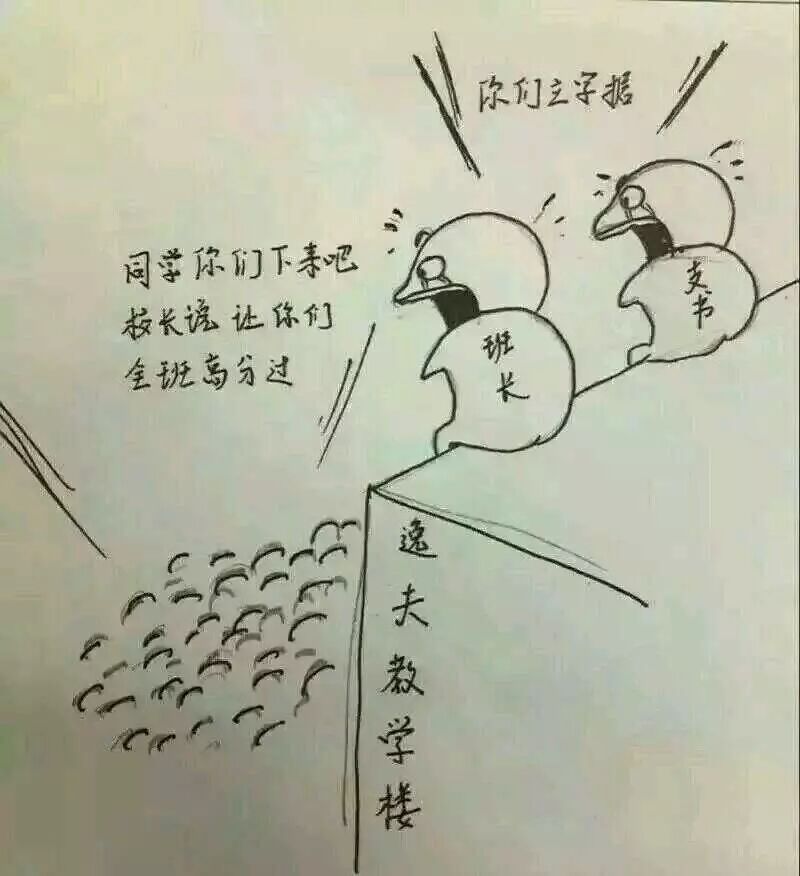 你们立字据
同学你们下来吧
校长说让你们
全班高分过
班长
支书
逸夫教学楼